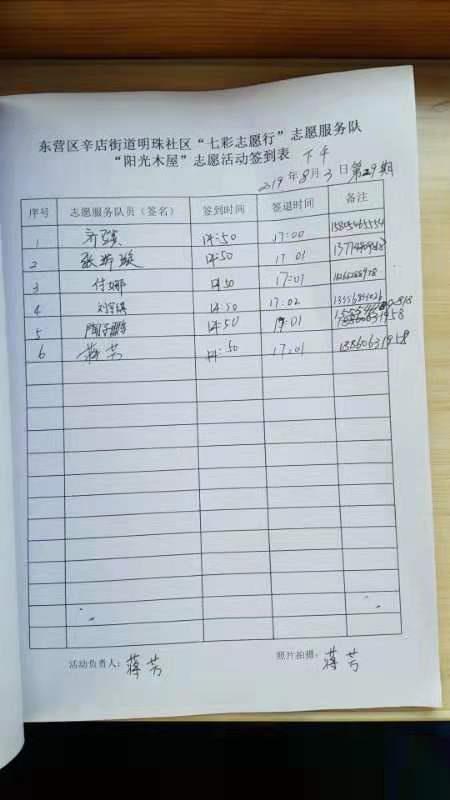 东营区辛店街道明珠社区“七彩志愿行”志愿服务队
“阳光木屋”志愿活动签到表 下午
2019年8月3日 第29期
序号 志愿服务队员（签名） 签到时间 签退时间 备注
1 14:50 17:00 15805465554
2 14:50 17:01
3 付娜 14:50 17:01
4 14:50 17:02
5 14:50 17:01
6 蒋芳 14:50 17:01 13860631958
活动负责人：蒋芳 照片拍摄：蒋芳